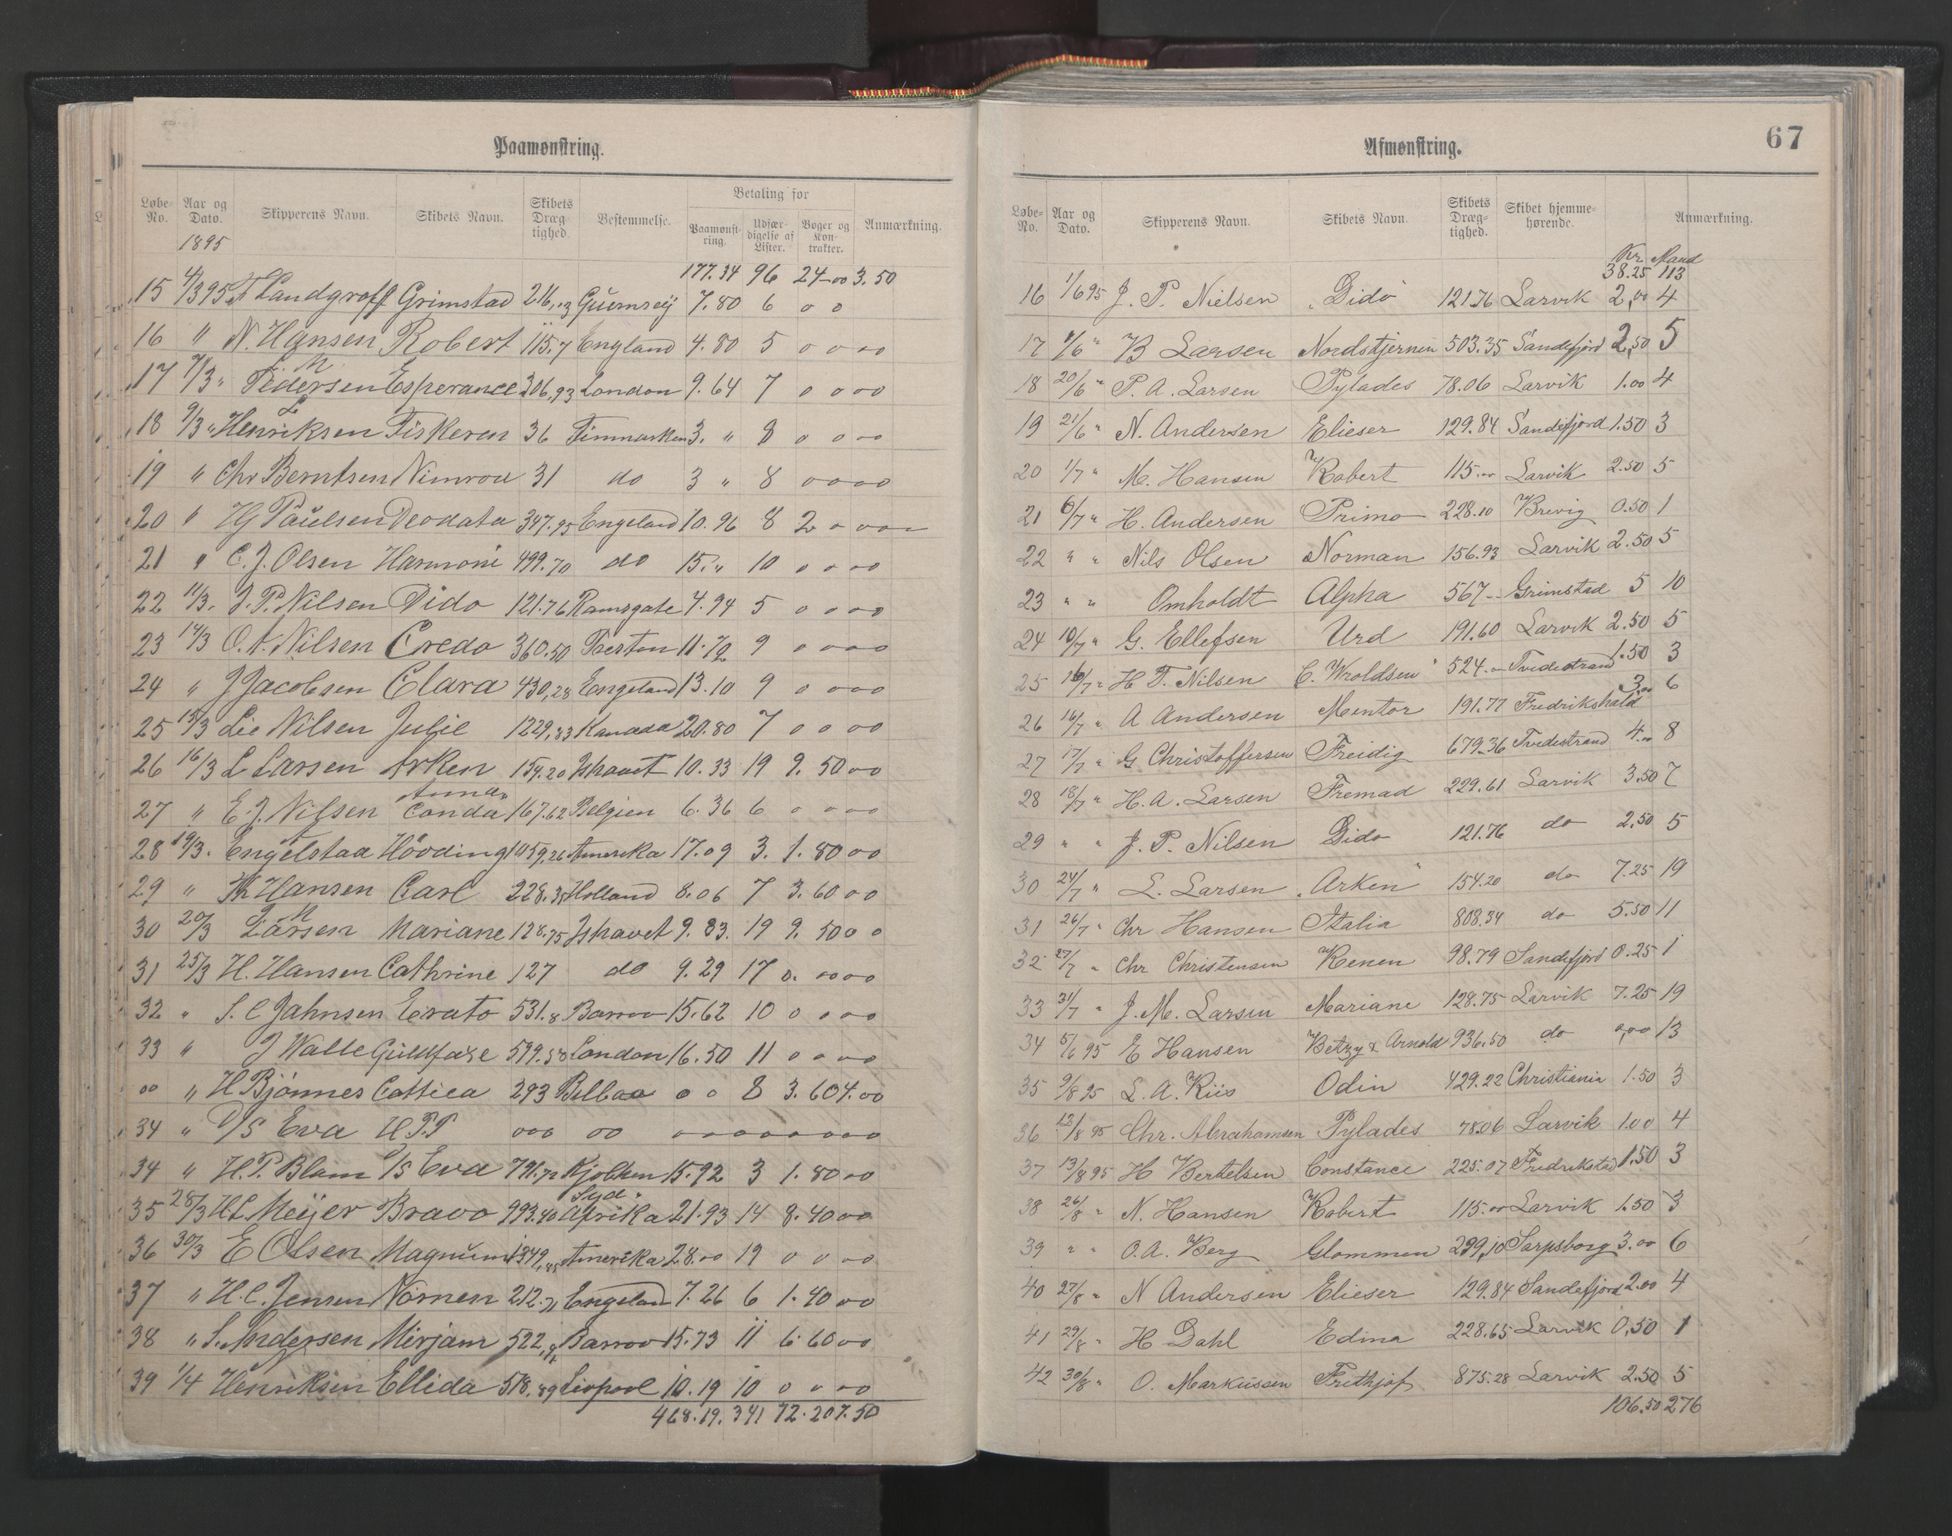 Paamønstring.
Løbe-No. Aar og Dato. Skipperens Navn. Skibets Navn. Skibets Dræg-tighed. Bestemmelse. Betaling for Paamønst-ring. Udfær-digelse af Lister. Bøger og Kon-trakter. Anmærkning.
1895
177.34 96 24-00 3.50
15 4/3 95 Landgroff Grimstad 216,13 Guernseÿ 7.80 6 o o
16 " N. Hansen Robert 115,7 England 4.80 5 o o o o
17 7/3 " M Pedersen Esperance 306,93 London 9.64 7 o o o o
18 9/3 " L Henriksen Fiskeren 36 Finmarken 3. " 8 o o o o
19 " Chr Berntsen Nimrod 31 do 3 " 8 o o o o
20 " Hj Paulsen Deodata 347.95 Engeland 10.96 8 2 o o o o
21 " C. J. Olsen Harmoni 499.70 do 15." 10 o o o o
22 11/3. J. P. Nilsen Dido 121.76 Ramsgate 4.94 5 o o o o
23 14/3 O. A. Nilsen Credo 360.50 11.72 9 o o o o
24 " J Jacobsen Clara 430,28 Engeland 13.10 9 o o o o
25 15/3 Lie Nilsen Julie 1229,83 Kanada 20.80 7 o o o o
26 16/3 L Larsen Arken 154.20 Ishavet 10.33 19 9. 50 o o
27 " E. J. Nilsen Anna Conda 167.62 Belgien 6.36 6 o o o o
28 19/3. Engelstad Hövding 1059,26 Amerika 17.09 3. 1. 80 o o
29 " Th Hansen Carl 228.35 Holland 8.06 7 3. 60 o o
30 20/3 J. M Larsen Mariane 128.75 Ishavet 9.83. 19 9. 50 o o
31 25/3 H. Hansen Cathrine 127 do 9.29 17 o. o o o o
32 " S. C Jahnsen Erato 531.8 Barrov 15.62 10 o o o o
33 " J Walle Guldfaxe 599.58 London 16.50 11 o o o o
oo " H Bjönnes Cattica 293 Bilbao o o 8 3. 60 4.00
34 " D/S Eva H P. P ooo oo o o o o o o o o o
34 " H. P. Blam D/S Eva 791.72 15.92 3 1. 80 o o
35 28/3 H L Meÿer Bravo 993.40 Syd Afrika 21.93 14 8. 40 o o
36 30/3 E Olsen Magnum 1349,85 Amerika 28.00 19 o o o o
37 " H. C. Jensen Nornen 212.71 Engeland 7.26 6 1. 40 o o
38 " S. Andersen Mirjam 522, Barrov 15.73 11 6. 60 o o
39 1/4 Henriksen Ellida 518.89 Livpool 10.19 10 o o o o
468.19. 341 72. 20 7.50
67
Afmønstring.
Løbe-No. Aar og Dato. Skipperens Navn. Skibets Navn. Skibets Dræg-tighed. Skibet hjemme-hørende. Anmærkning.
Kr. Mand
38.25 113
16 1/6 95 J. P. Nielsen "Dido" 121.76 Larvik 2,00 4
17 7/6 " B Larsen Nordstjernen 503.35 Sandefjord 2,50 5
18 20/6 " P. A. Larsen Pylades 78.06 Larvik 1.00 4
19 21/6 " N. Andersen Elieser 129.84 Sandefjord 1.50 3
20 1/7 " M. Hansen Robert 115.00 Larvik 2.50 5
21 6/7 " H. Andersen Primo 228.10 Brevig 0.50 1
22 " " Nils Olsen Norman 156.93 Larvik 2.50 5
23 " " Omholdt Alpha 567-- Grimstad 5 10
24 10/7 " G. Ellefsen Urd 191.60 Larvik 2.50 5
25 16/7 " H T. Nilsen C. Wroldsen" 524.00 Tvedestrand 1.50 3
26 16/7 " A Andersen Mentor 191.77 Fredrikshald 3,00 6
27 17/7 " G Christoffersen Freidig 679.36 Tvedestrand 4.00 8
28 18/7 " H. A. Larsen Fremad 229.61 Larvik 3.50 7
29 " " J. P. Nilsen Dido 121.76 do 2.50 5
30 24/7 " L. Larsen "Arken" 154.20 do 7.25 19
31 26/7 " Chr Hansen Italia 808.34 do 5.50 11
32 27/7 " Chr Christensen Renen 98.79 Sandefjord 0.25 1
33 31/7 " J. M. Larsen Mariane 128.75 Larvik 7.25 19
34 5/6 95 E Hansen Betzy & Arnold 936.50 do 13
35 9/8 95 L. A. Riis Odin 429.22 Christiania 1.50 3
36 12/8 95 Chr. Abrahamsen Pylades 78.06 Larvik 1.00 4
37 13/8 95 H Bertelsen Constance 225.07 Fredrikstad 1.50 3
38 26/8 " N. Hansen Robert 115.00 Larvik 1.50 3
39 " " O. A. Berg Glommen 299,10 Sarpsborg 3.00 6
40 27/8 " N Andersen Elieser 129.84 Sandefjord 2.00 4
41 29/8 " H Dahl Edina 228.65 Larvik 0,50 1
42 30/8 " O. Markussen Frithjof 875.28 Larvik 2.50 5
106.50 276